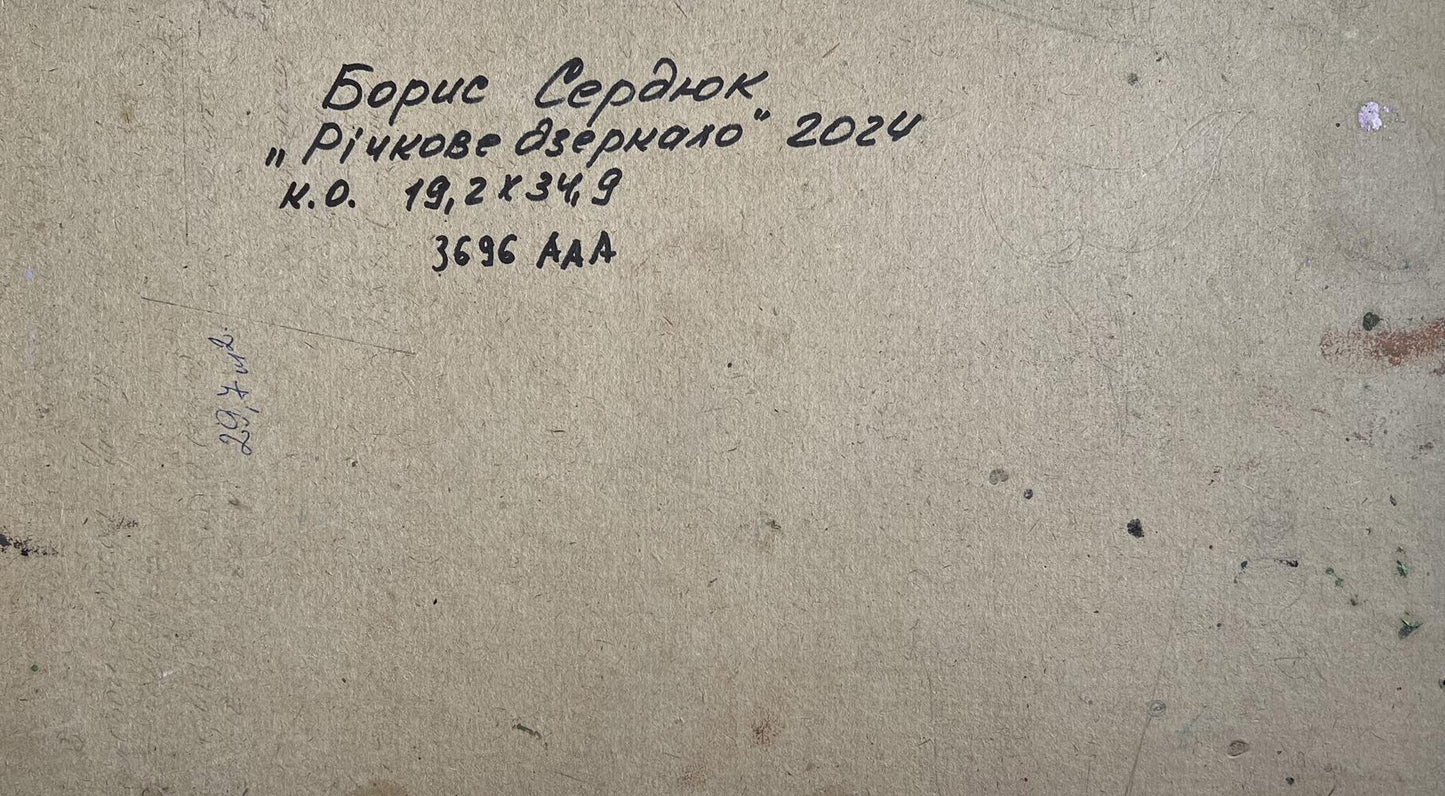 Борис Сердюк
„Річкове дзеркало" 2024
к.о. 19,2 x 34,9
3696 AAA
29,7 м².